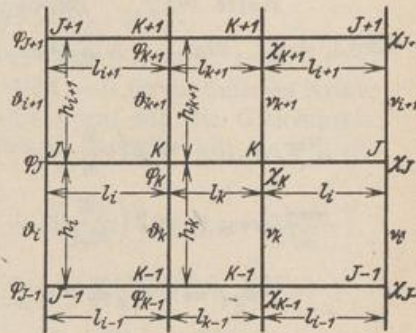 J+1 K+1 K+1 J+1
φJ+1 φK+1 χK+1 χJ+
li+1 lk+1 li+1
ϑi+1 hi+1 ϑk+1 hk+1 νk+1 νi+
J K K J
φJ φK χK χJ
li lk li
ϑi hi ϑk hk νk νi
K-1 K-1 J-1
φJ-1 J-1 φK-1 χK-1 χJ-
li-1 lk-1 li-1